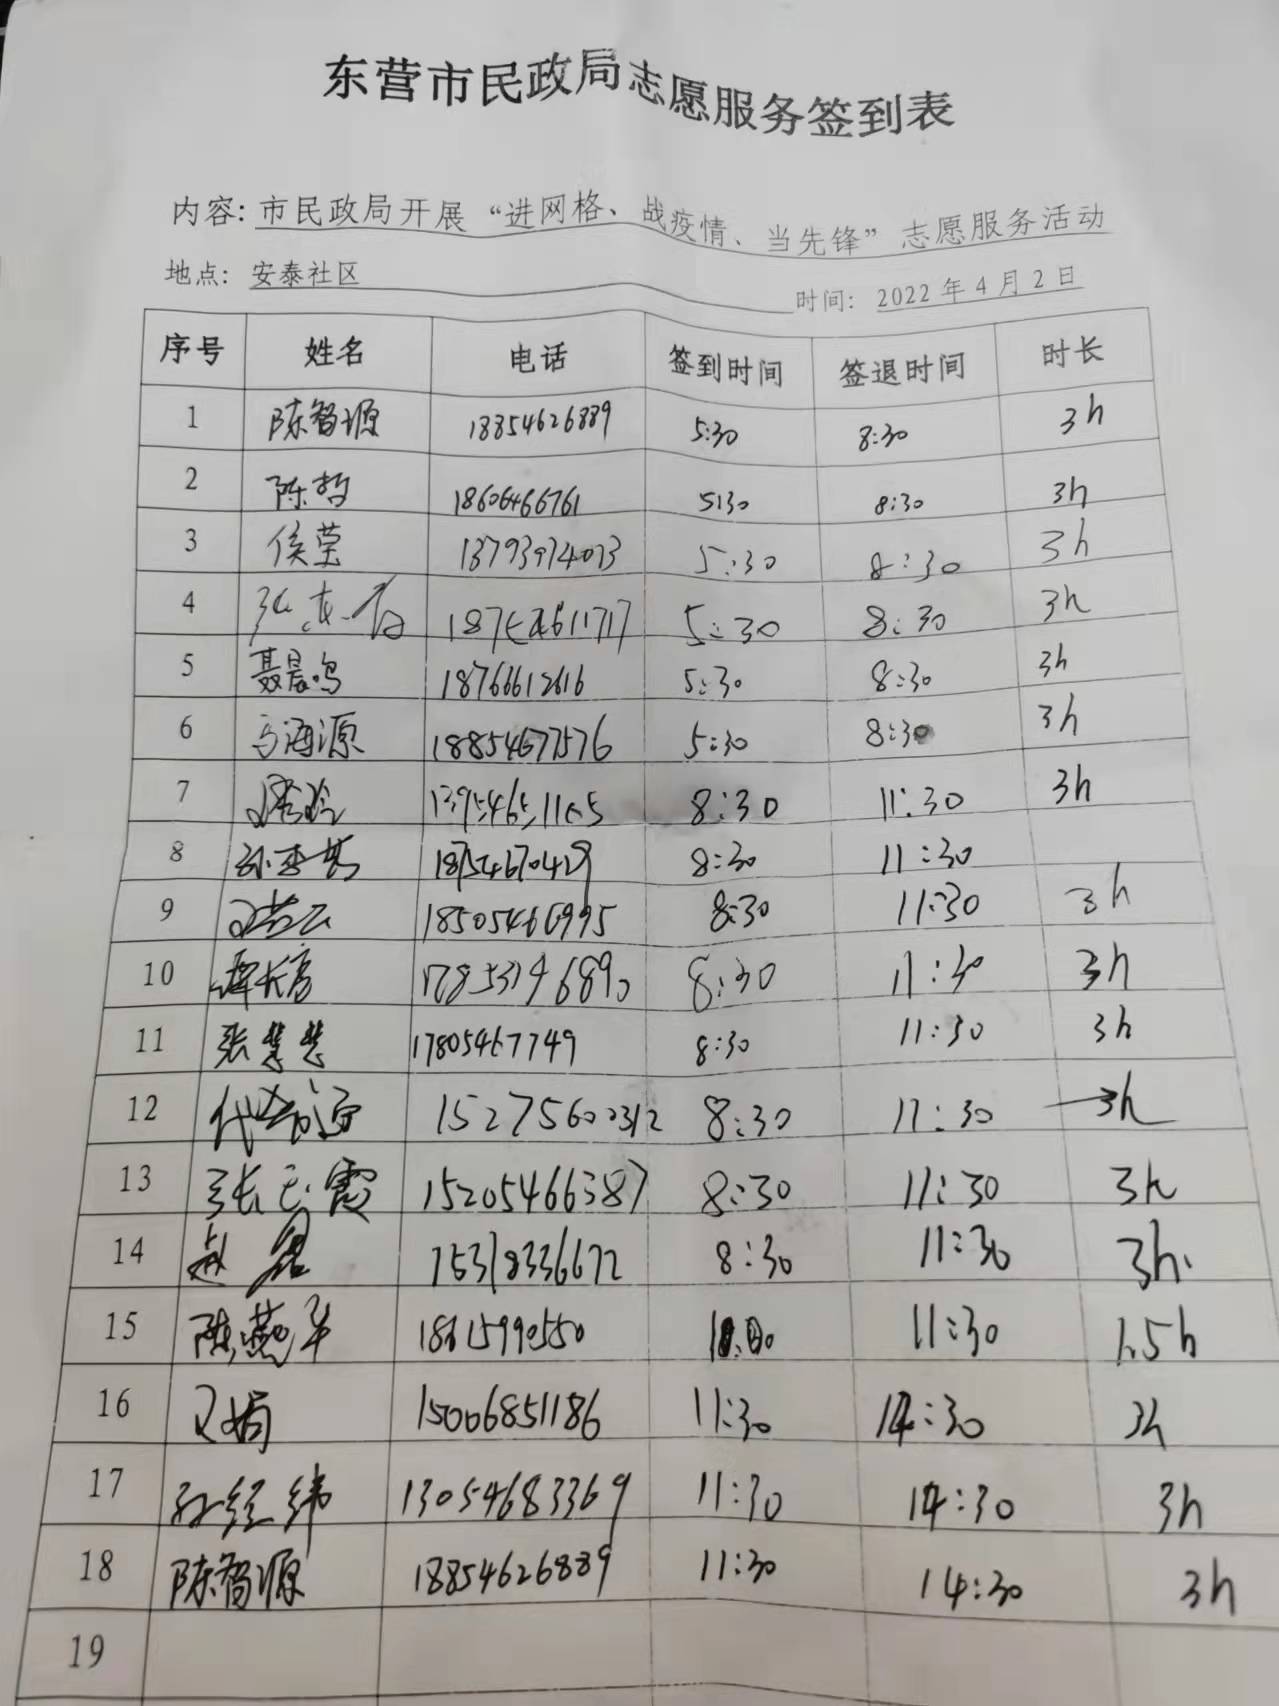 东营市民政局志愿服务签到表
内容: 市民政局开展“进网格、战疫情、当先锋”志愿服务活动
地点: 安泰社区
时间: 2022年4月2日
序号 姓名 电话 签到时间 签退时间 时长
1 陈智源 18854626889 5:30 8:30 3h
2 陈哲 18606466761 5:30 8:30 3h
3 侯莹 13793974073 5:30 8:30 3h
4 5:30 8:30 3h
5 聂晨鸣 18766612616 5:30 8:30 3h
6 马海源 18854677576 5:30 8:30 3h
7 8:30 11:30 3h
8 18754670429 8:30 11:30
9 18505466995 8:30 11:30 3h
10 谭长青 17853146890 8:30 11:30 3h
11 张慧慧 17805467749 8:30 11:30 3h
12 15275600312 8:30 11:30 3h
13 张玉霞 15205466387 8:30 11:30 3h
14 赵 15318336672 8:30 11:30 3h.
15 陈燕华 18615990550 11:30 1.5h
16 15006851186 11:30 14:30 3h
17 孙经纬 13054683369 11:30 14:30 3h
18 陈智源 18854626889 11:30 14:30 3h
19